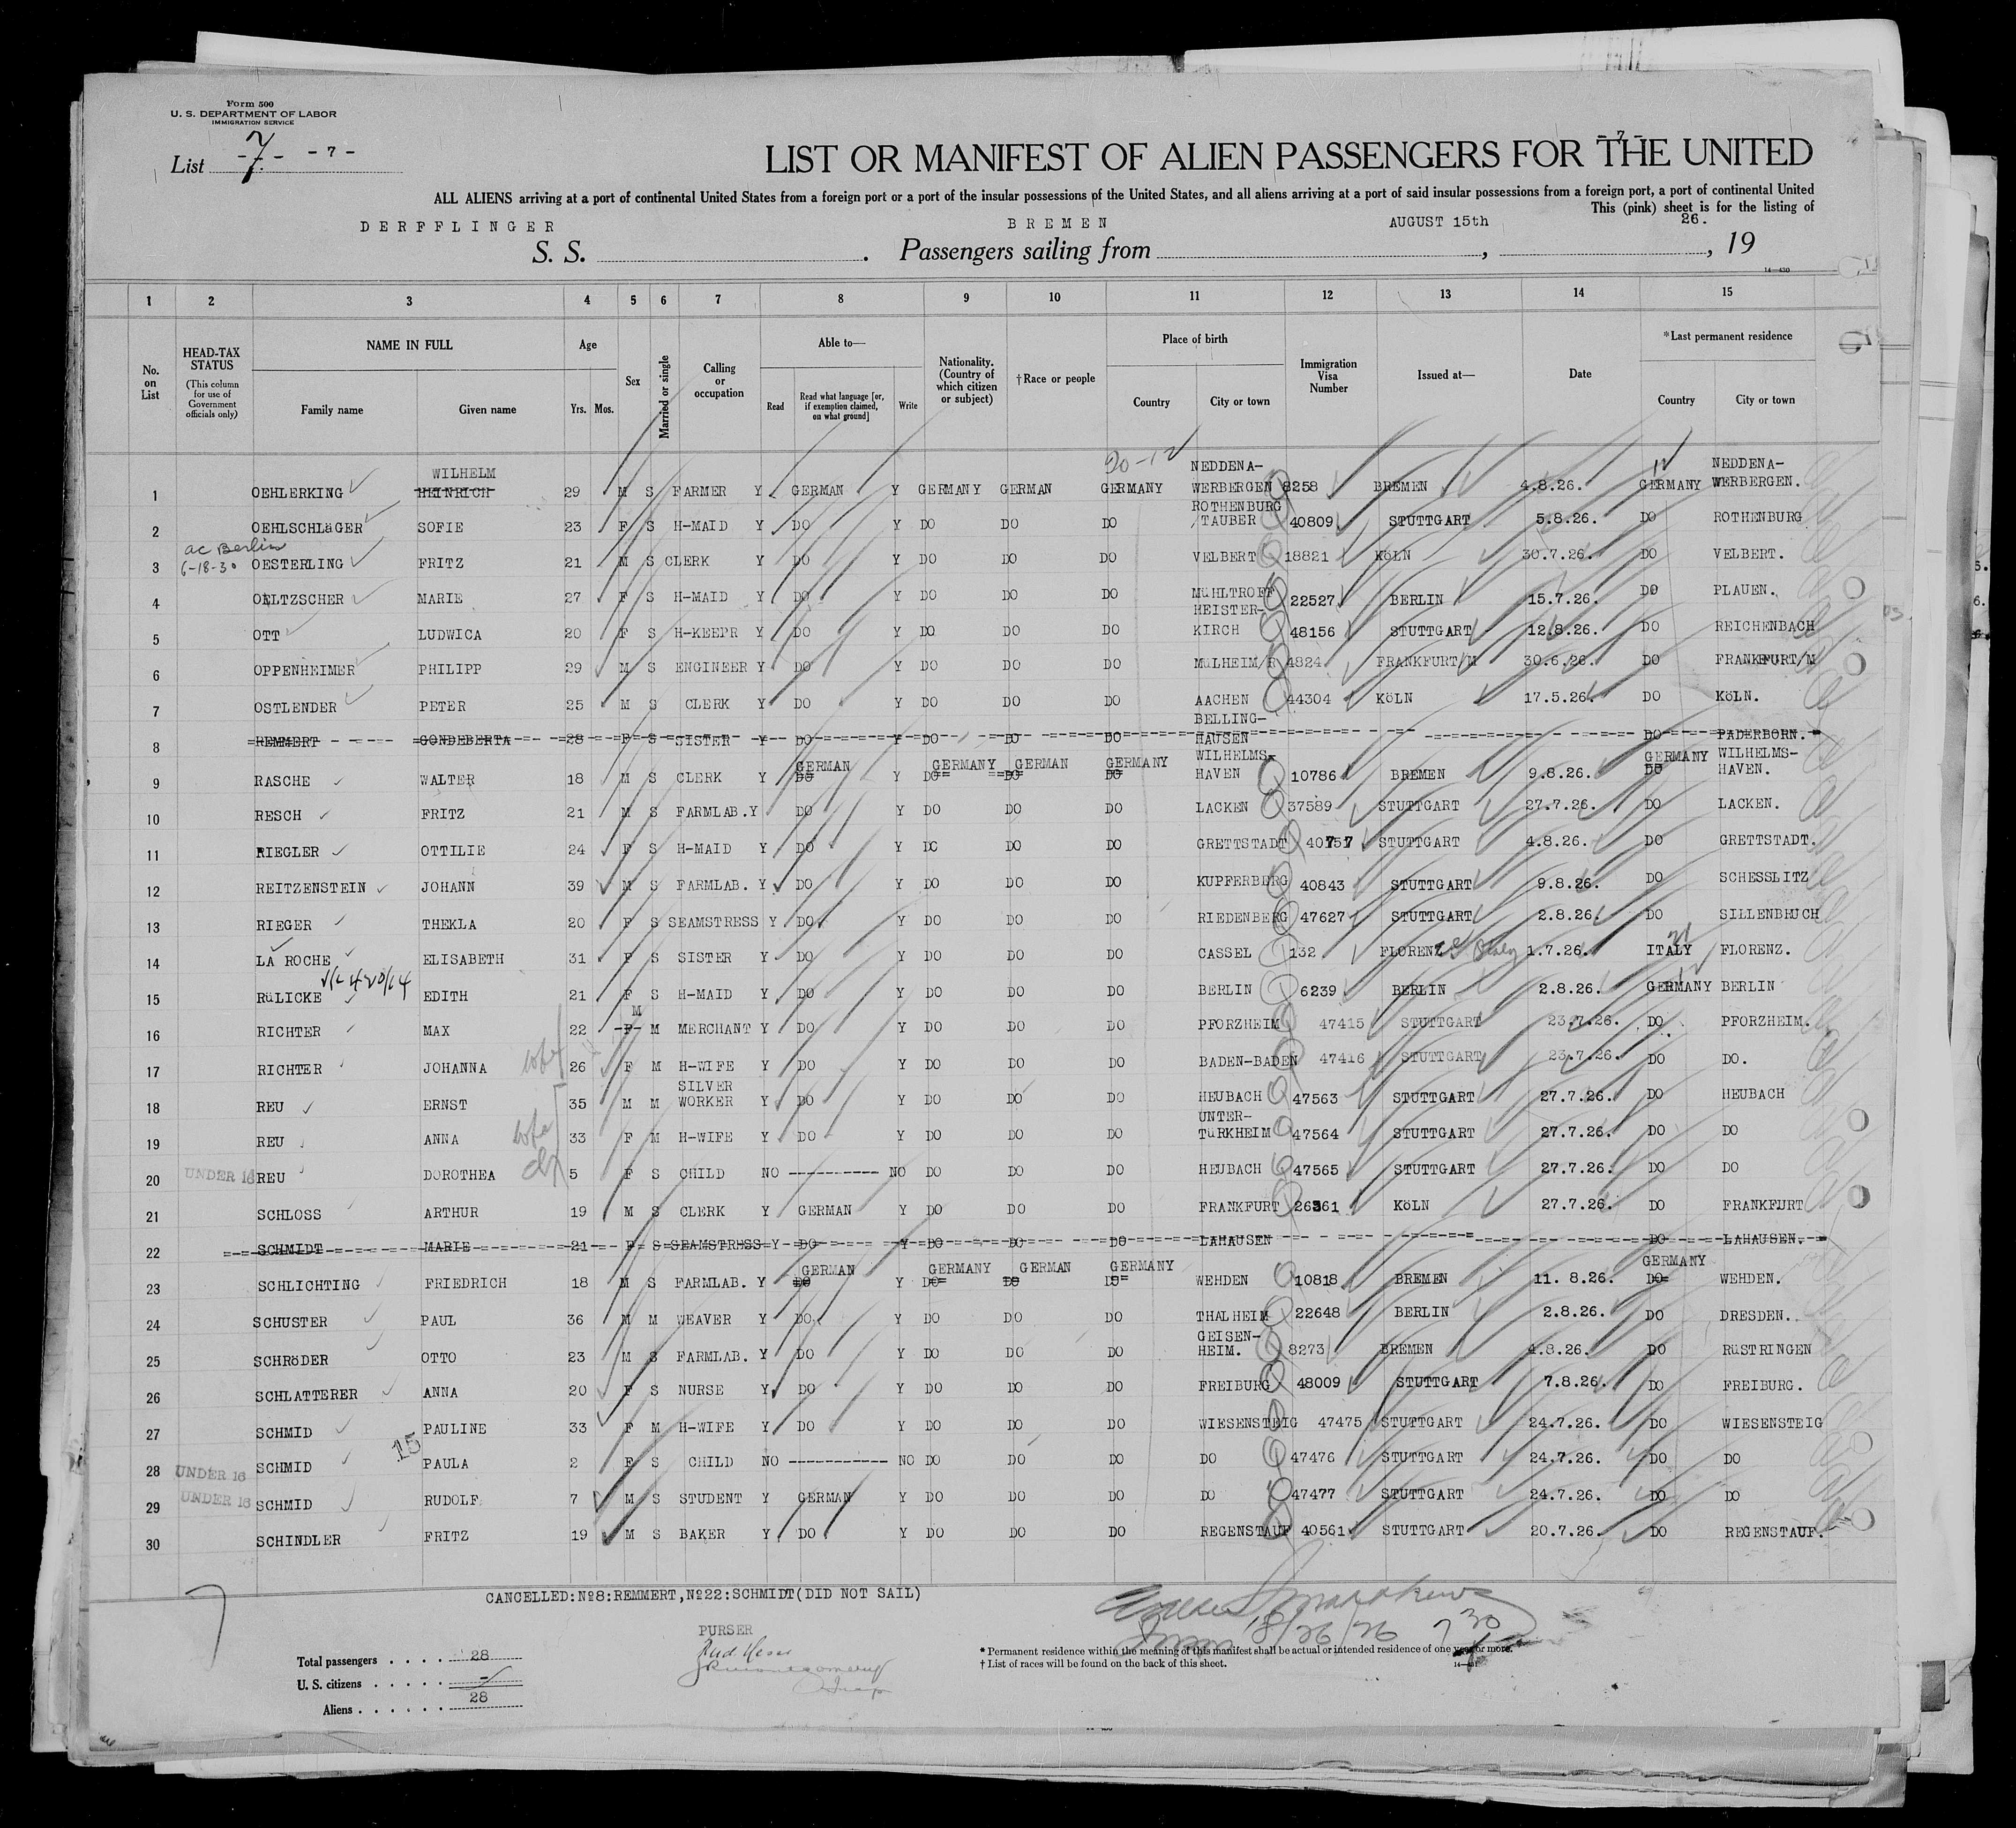 Form 500
U. S. DEPARTMENT OF LABOR
IMMIGRATION SERVICE
List 7 - 7 -
- 7 -
LIST OR MANIFEST OF ALIEN PASSENGERS FOR THE UNITED
ALL ALIENS arriving at a port of continental United States from a foreign port or a port of the insular possessions of the United States, and all aliens arriving at a port of said insular possessions from a foreign port, a port of continental United
This (pink) sheet is for the listing of
DERFFLINGER BREMEN AUGUST 15th 26.
S. S. . Passengers sailing from , , 19
14—430
1 2 3 4 5 6 7 8 9 10 11 12 13 14 15
No. on List
HEAD-TAX STATUS (This column for use of Government officials only)
NAME IN FULL Family name Given name
Age Yrs. Mos.
Sex
Married or single
Calling or occupation
Able to— Read Read what language [or, if exemption claimed, on what ground] Write
Nationality. (Country of which citizen or subject)
†Race or people
Place of birth Country City or town
Immigration Visa Number
Issued at—
Date
*Last permanent residence Country City or town
20-12
WILHELM NEDDENA- NEDDENA-
1 OEHLERKING HEINRICH 29 M S FARMER Y GERMAN Y GERMANY GERMAN GERMANY WERBERGEN 8258 BREMEN 4.8.26. GERMANY WERBERGEN.
ROTHENBURG
2 OEHLSCHLäGER SOFIE 23 F S H-MAID Y DO Y DO DO DO /TAUBER 40809 STUTTGART 5.8.26. DO ROTHENBURG
ac Berlin
6-18-30
3 OESTERLING FRITZ 21 M S CLERK Y DO Y DO DO DO VELBERT 18821 KöLN 30.7.26. DO VELBERT.
4 OELTZSCHER MARIE 27 F S H-MAID Y DO Y DO DO DO MüHLTROFF 22527 BERLIN 15.7.26. DO PLAUEN.
HEISTER-
5 OTT LUDWICA 20 F S H-KEEPR Y DO Y DO DO DO KIRCH 48156 STUTTGART 12.8.26. DO REICHENBACH
6 OPPENHEIMER PHILIPP 29 M S ENGINEER Y DO Y DO DO DO MüLHEIM/R 4824 FRANKFURT/M 30.6.26. DO FRANKFURT/M
7 OSTLENDER PETER 25 M S CLERK Y DO Y DO DO DO AACHEN 44304 KöLN 17.5.26. DO KöLN.
BELLING-
8 REMMERT GONDEBERTA 28 F S SISTER Y DO Y DO DO DO HAUSEN DO PADERBORN.
GERMAN GERMANY GERMAN GERMANY WILHELMS- GERMANY WILHELMS-
9 RASCHE WALTER 18 M S CLERK Y DO Y DO DO DO HAVEN 10786 BREMEN 9.8.26. DO HAVEN.
10 RESCH FRITZ 21 M S FARMLAB. Y DO Y DO DO DO LACKEN 37589 STUTTGART 27.7.26. DO LACKEN.
11 RIEGLER OTTILIE 24 F S H-MAID Y DO Y DO DO DO GRETTSTADT 40757 STUTTGART 4.8.26. DO GRETTSTADT.
12 REITZENSTEIN JOHANN 39 M S FARMLAB. Y DO Y DO DO DO KUPFERBERG 40843 STUTTGART 9.8.26. DO SCHESSLITZ
13 RIEGER THEKLA 20 F S SEAMSTRESS Y DO Y DO DO DO RIEDENBERG 47627 STUTTGART 2.8.26. DO SILLENBRUCH
14 LA ROCHE ELISABETH 31 F S SISTER Y DO Y DO DO DO CASSEL 132 FLORENZ Italy 1.7.26. ITALY FLORENZ.
15 RüLICKE EDITH 21 F S H-MAID Y DO Y DO DO DO BERLIN 6239 BERLIN 2.8.26. GERMANY BERLIN
M
16 RICHTER MAX 22 F M MERCHANT Y DO Y DO DO DO PFORZHEIM 47415 STUTTGART 23.7.26. DO PFORZHEIM.
17 RICHTER JOHANNA 26 F M H-WIFE Y DO Y DO DO DO BADEN-BADEN 47416 STUTTGART 23.7.26. DO DO.
SILVER
18 REU ERNST 35 M M WORKER Y DO Y DO DO DO HEUBACH 47563 STUTTGART 27.7.26. DO HEUBACH
UNTER-
19 REU ANNA 33 F M H-WIFE Y DO Y DO DO DO TüRKHEIM 47564 STUTTGART 27.7.26. DO DO
20 UNDER 16 REU DOROTHEA 5 F S CHILD NO ---------- NO DO DO DO HEUBACH 47565 STUTTGART 27.7.26. DO DO
21 SCHLOSS ARTHUR 19 M S CLERK Y GERMAN Y DO DO DO FRANKFURT 26361 KöLN 27.7.26. DO FRANKFURT
22 SCHMIDT MARIE 21 F S SEAMSTRESS Y DO Y DO DO DO LAHAUSEN DO LAHAUSEN.
GERMAN GERMANY GERMAN GERMANY GERMANY
23 SCHLICHTING FRIEDRICH 18 M S FARMLAB. Y DO Y DO DO DO WEHDEN 10818 BREMEN 11. 8.26. DO WEHDEN.
24 SCHUSTER PAUL 36 M M WEAVER Y DO Y DO DO DO THALHEIM 22648 BERLIN 2.8.26. DO DRESDEN.
GEISEN-
25 SCHRöDER OTTO 23 M S FARMLAB. Y DO Y DO DO DO HEIM. 8273 BREMEN 4.8.26. DO RüSTRINGEN
26 SCHLATTERER ANNA 20 F S NURSE Y DO Y DO DO DO FREIBURG 48009 STUTTGART 7.8.26. DO FREIBURG.
27 SCHMID PAULINE 33 F M H-WIFE Y DO Y DO DO DO WIESENSTEIG 47475 STUTTGART 24.7.26. DO WIESENSTEIG
15
28 UNDER 16 SCHMID PAULA 2 F S CHILD NO ----------- NO DO DO DO DO 47476 STUTTGART 24.7.26. DO DO
29 UNDER 16 SCHMID RUDOLF 7 M S STUDENT Y GERMAN Y DO DO DO DO 47477 STUTTGART 24.7.26. DO DO
30 SCHINDLER FRITZ 19 M S BAKER Y DO Y DO DO DO REGENSTAUF 40561 STUTTGART 20.7.26. DO REGENSTAUF.
CANCELLED:No8:REMMERT,No22:SCHMIDT(DID NOT SAIL)
7
PURSER
8/26/26 730
Total passengers . . . . 28
U. S. citizens . . . . . -
Aliens . . . . . . 28
* Permanent residence within the meaning of this manifest shall be actual or intended residence of one year or more.
† List of races will be found on the back of this sheet.